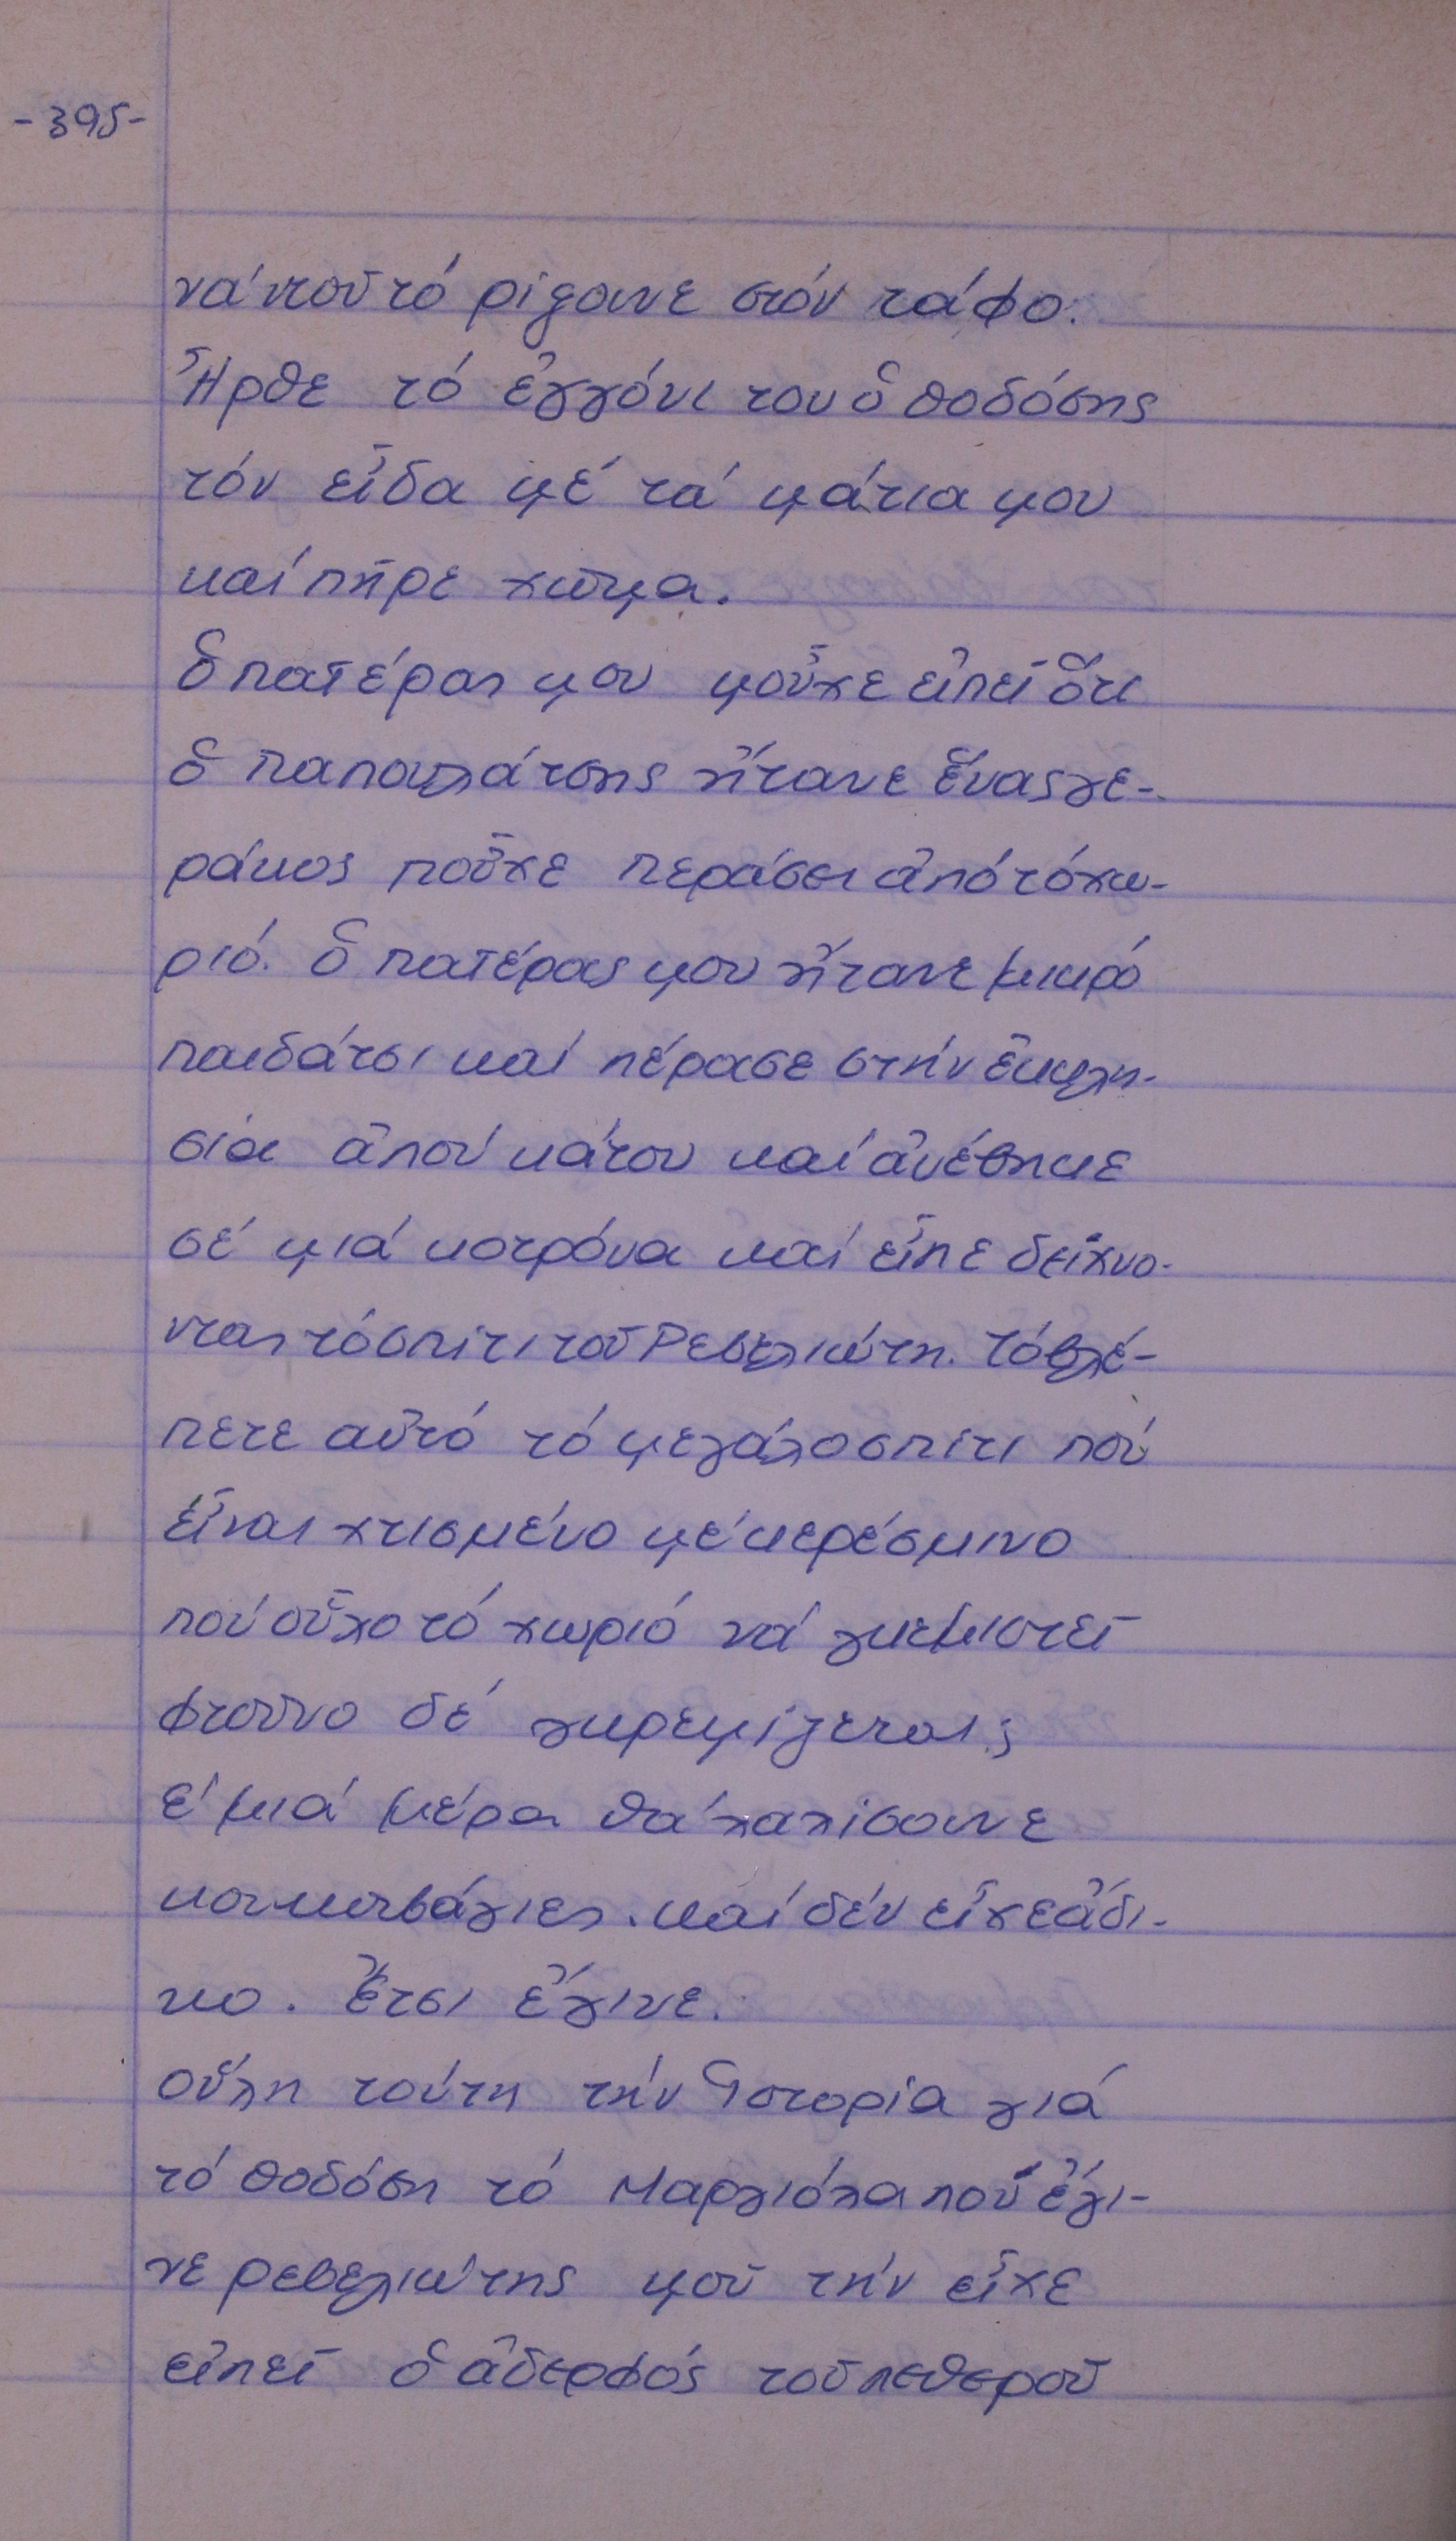 -395-
νά ντοῦ τό ρίξουνε στόν τάφο.
Ἦρθε τό ἐγγόνι του ὁ Θοδόσης
τόν εἶδα μέ τά μάτια μου
καί πῆρε χῶμα.
ὁ πατέρας μου μοὖχε εἰπεῖ ὅτι
ὁ παπουλάτσης ἤτανε ἕνας γε-
ράκος ποὖχε περάσει ἀπό τό χω-
ριό. ὁ πατέρας μου ἤτανε μικρό
παιδάτσι καί πέρασε στήν ἐκκλη-
σία ἀπού κάτου καί ἀνέβηκε
σέ μιά κοτρόνα καί εἶπε δείχνο-
ντας τό σπίτι τοῦ Ρεβελιώτη. Τό βλέ-
πετε αὐτό τό μεγάλο σπίτι πού
εἶναι χτισμένο μέ κερέσμινο
πού οὖλο τό χωριό νά γκεμιστεῖ
φτοῦνο δέ γκρεμίζεται;
έ μιά μέρα θά χαχίσουνε
κουκουβάγιες. καί δέν εἶχε ἄδι-
κο. Ἔτσι ἔγινε.
οὕλη τούτη τήν Ἱστορία γιά
τό Θοδόση τό Μαργιόλα πού ἔγι-
νε ρεβελιώτης μοῦ τήν εἶχε
εἰπεῖ ὁ ἀδερφός τοῦ πεθεροῦ